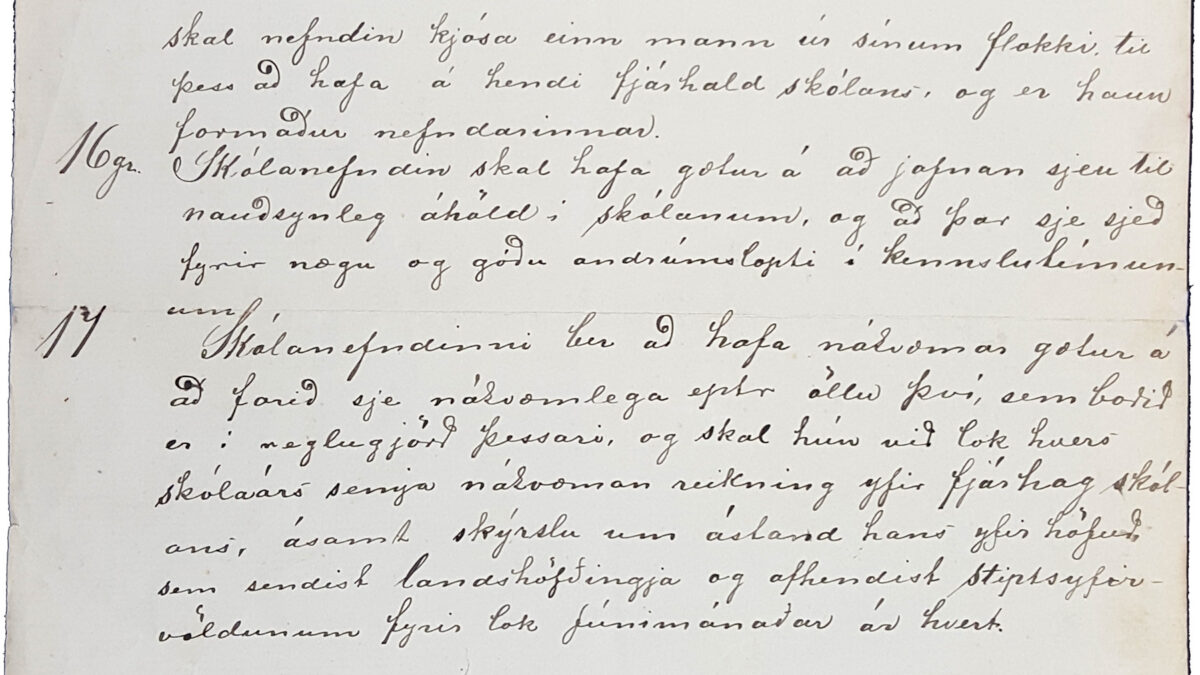 skal nefndin kjósa einn mann úr sínum flokki, til
þess að hafa á hendi fjárhald skólans, og er hann
formaður nefndarinnar.
16gr. Skólanefndin skal hafa gætur á að jafnan sjeu til
nauðsynleg áhöld í skólanum, og að þar sje sjeð
fyrir nægu og góðu andrúmslopti í kennslutímun-
um
17 Skólanefndinni ber að hafa nákvæmar gætur á
að farið sje nákvæmlega eptir öllu því, sem boðið
er í reglugjörð þessari, og skal hún við lok hvers
skólaárs semja nákvæman reikning yfir fjárhag skól-
ans, ásamt skýrslu um ástand hans yfir höfuð,
sem sendist landshöfðingja og afhendist stiptsyfir-
völdunum fyrir lok júnímánaðar ár hvert.